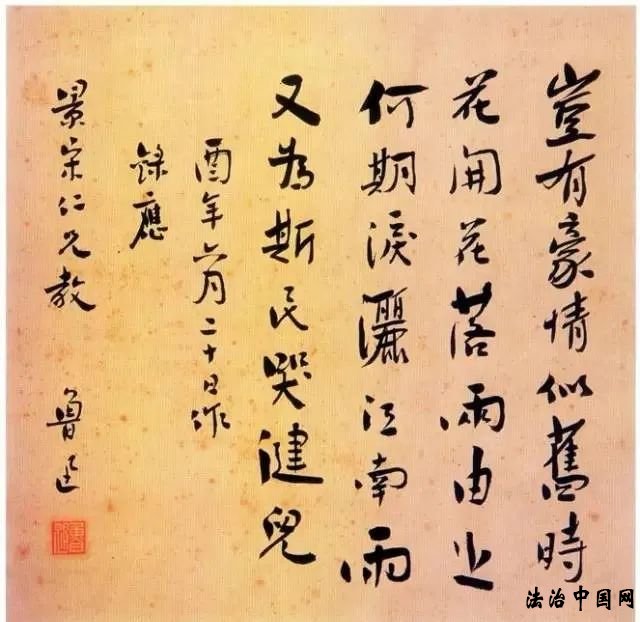 豈有豪情似舊時
花開花落兩由之
何期淚灑江南雨
又為斯民哭健兒
酉年六月二十日作
錄應
景宋仁兄教
魯迅
法治中国网